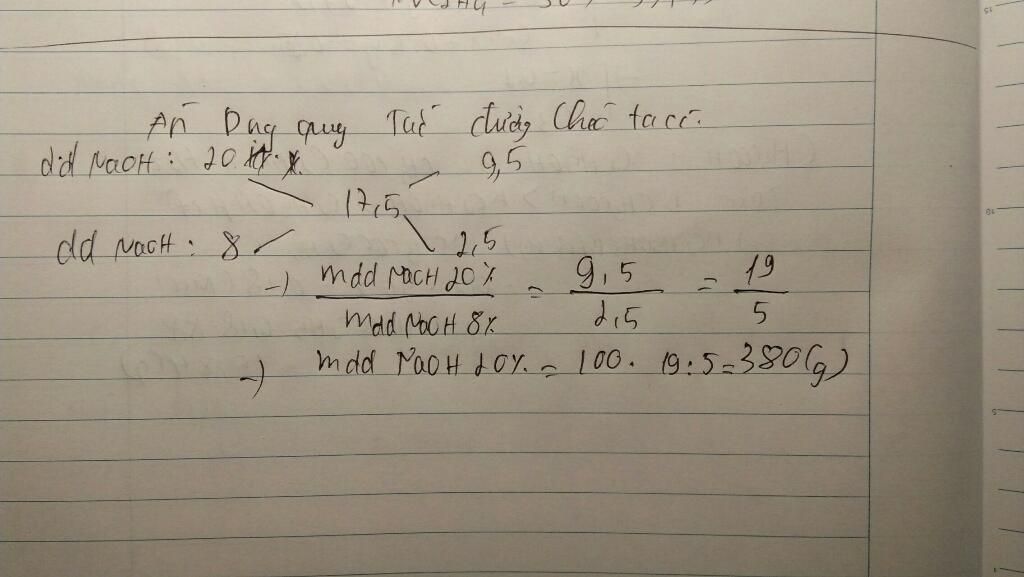 Áp Dụng quy Tắc đường Chéo ta có.
dd NaOH : 20 %. 9,5
17,5
dd NaOH : 8 2,5
→ mdd NaOH 20% / mdd NaOH 8% = 9,5 / 2,5 = 19 / 5
→ mdd NaOH 20% = 100 . 19 : 5 = 380 (g)